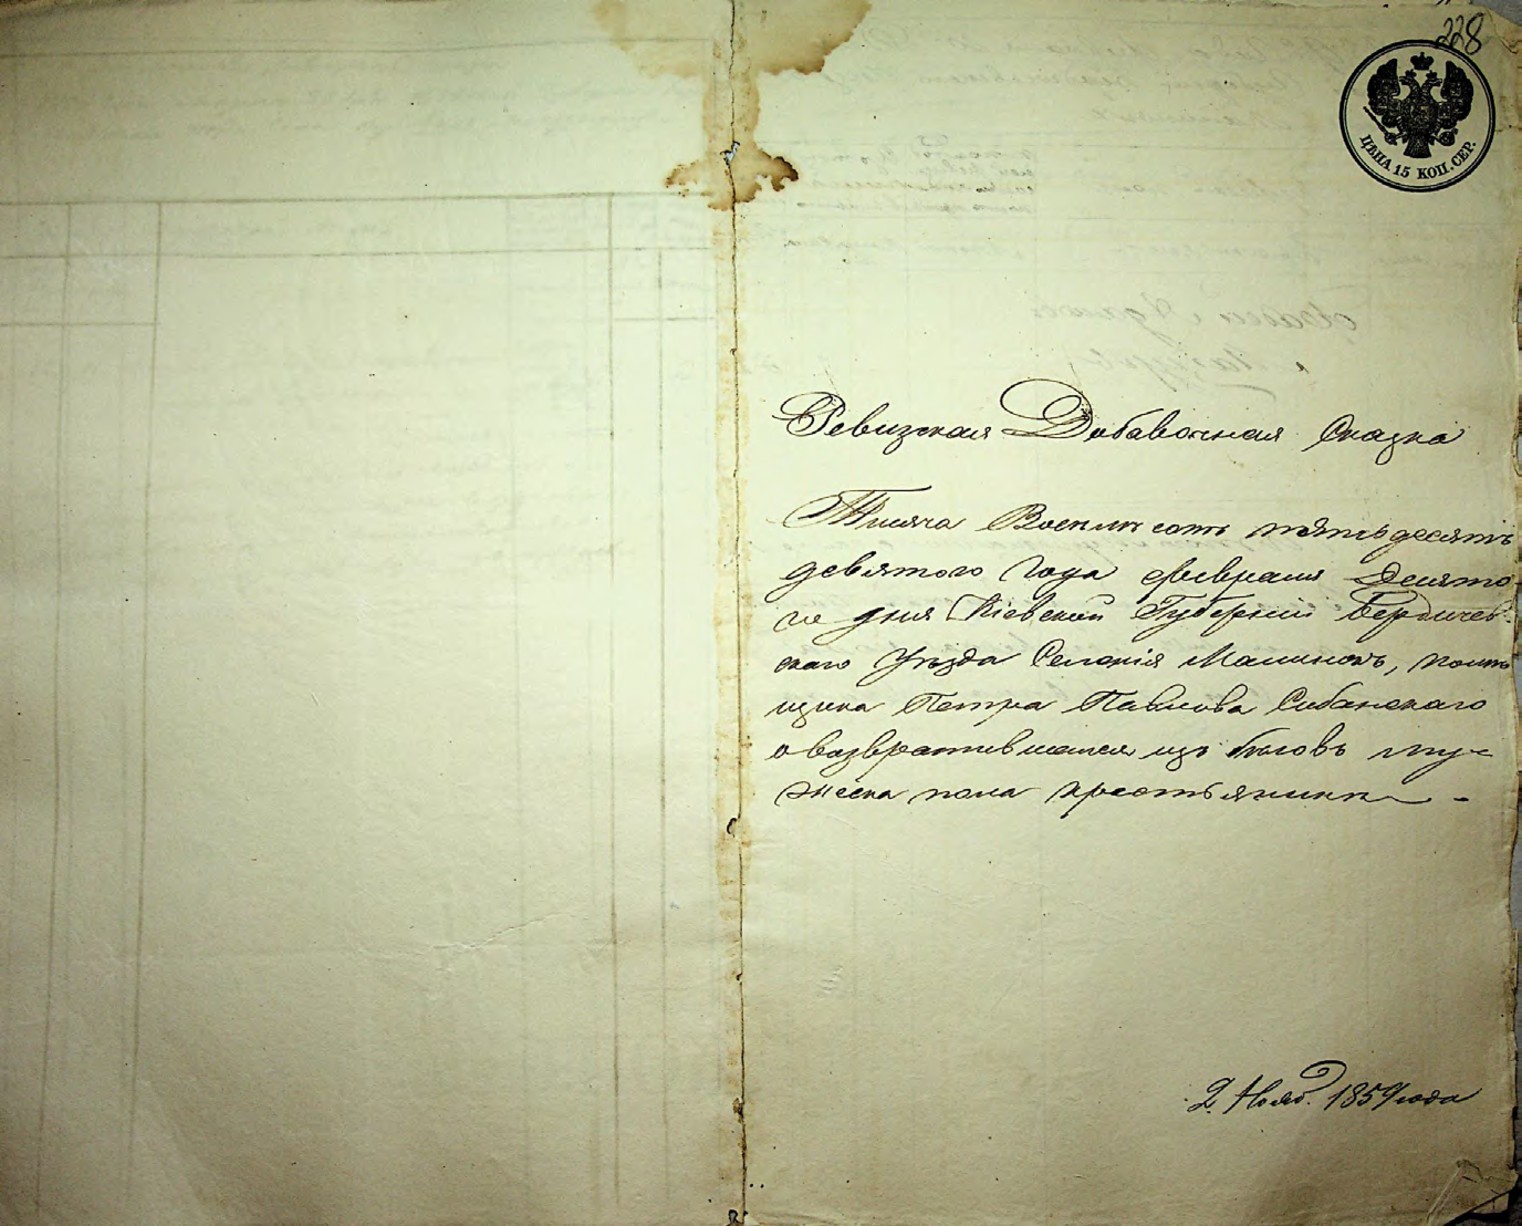 228
ЦѢНА 15 КОП. СЕР.
Ревизская Добавочная Сказка
Тысяча Восемь сотъ пятьдесятъ
девятого года февраля Десято
го дня Кіевской Губерніи Бердичев
скаго Уѣзда Селенія Малинокъ, помѣ
щика Петра Павлова Собанскаго
о возвратившемся изъ бѣговъ му-
жеска пола крестьянинѣ -
2. Нояб. 1859 года